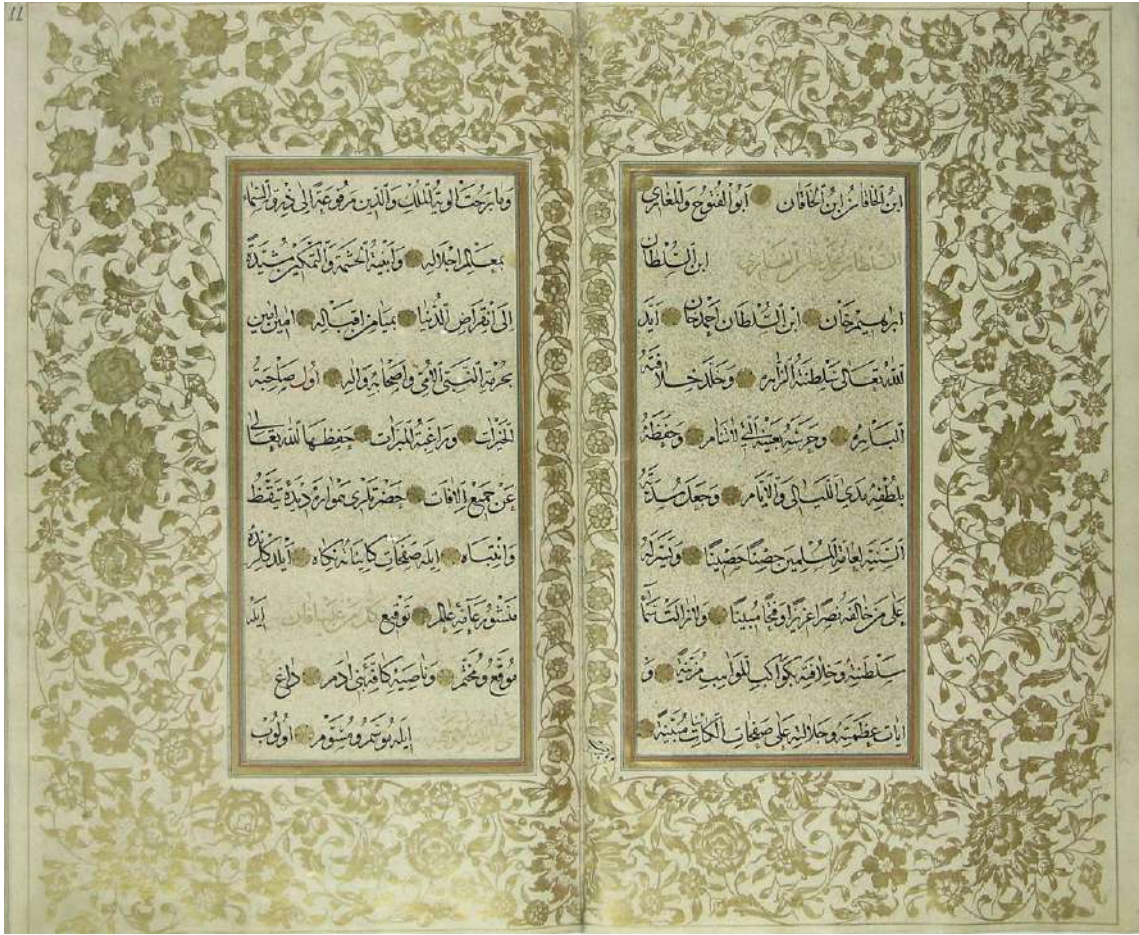 ابن الخاقان ابن الخاقان ابو الفتوح والمغازی
السلطان ابن السلطان
ابرهیم خان ابن السلطان احمد خان اید
الله تعالی سلطنته الزاهره وخلد خلافته
الباهره وحرسه بعینه التی لاتنام وحفظه
بلطفه مدی اللیالی والایام وجعل سدته
السنیه لعامة المسلمین حصنا حصینا ویسر له
علی من خالفه نصرا عزیزا وفتحا مبینا ولازالت سماء
سلطنته وخلافته بکواکب المواهب مزینة و
ایات عظمته وجلالته علی صفحات الکائنات مبینة
وما برحت الویة الملک والدین مرفوعة الی ذروة السماء
بمعالم اجلاله وابنیة الحشمة والتمکین مشیدة
الی انقراض الدنیا بمیامن اقباله امین امین
بحرمة النبی الامی واصحابه واله اول صاحبة
الخیرات وراغبة المبرات حفظها الله تعالی
عن جمیع الافات حضرتلری همواره دیدهٔ تیقظ
وانتباه ایله صفحات کایناته نکاه ایلدکلرنده
منشور عامهٔ عالم توقیع ایله
موقع ومختم وناصیهٔ کافهٔ بنی ادم داغ
ایله موسم ومسوم اولوب
11